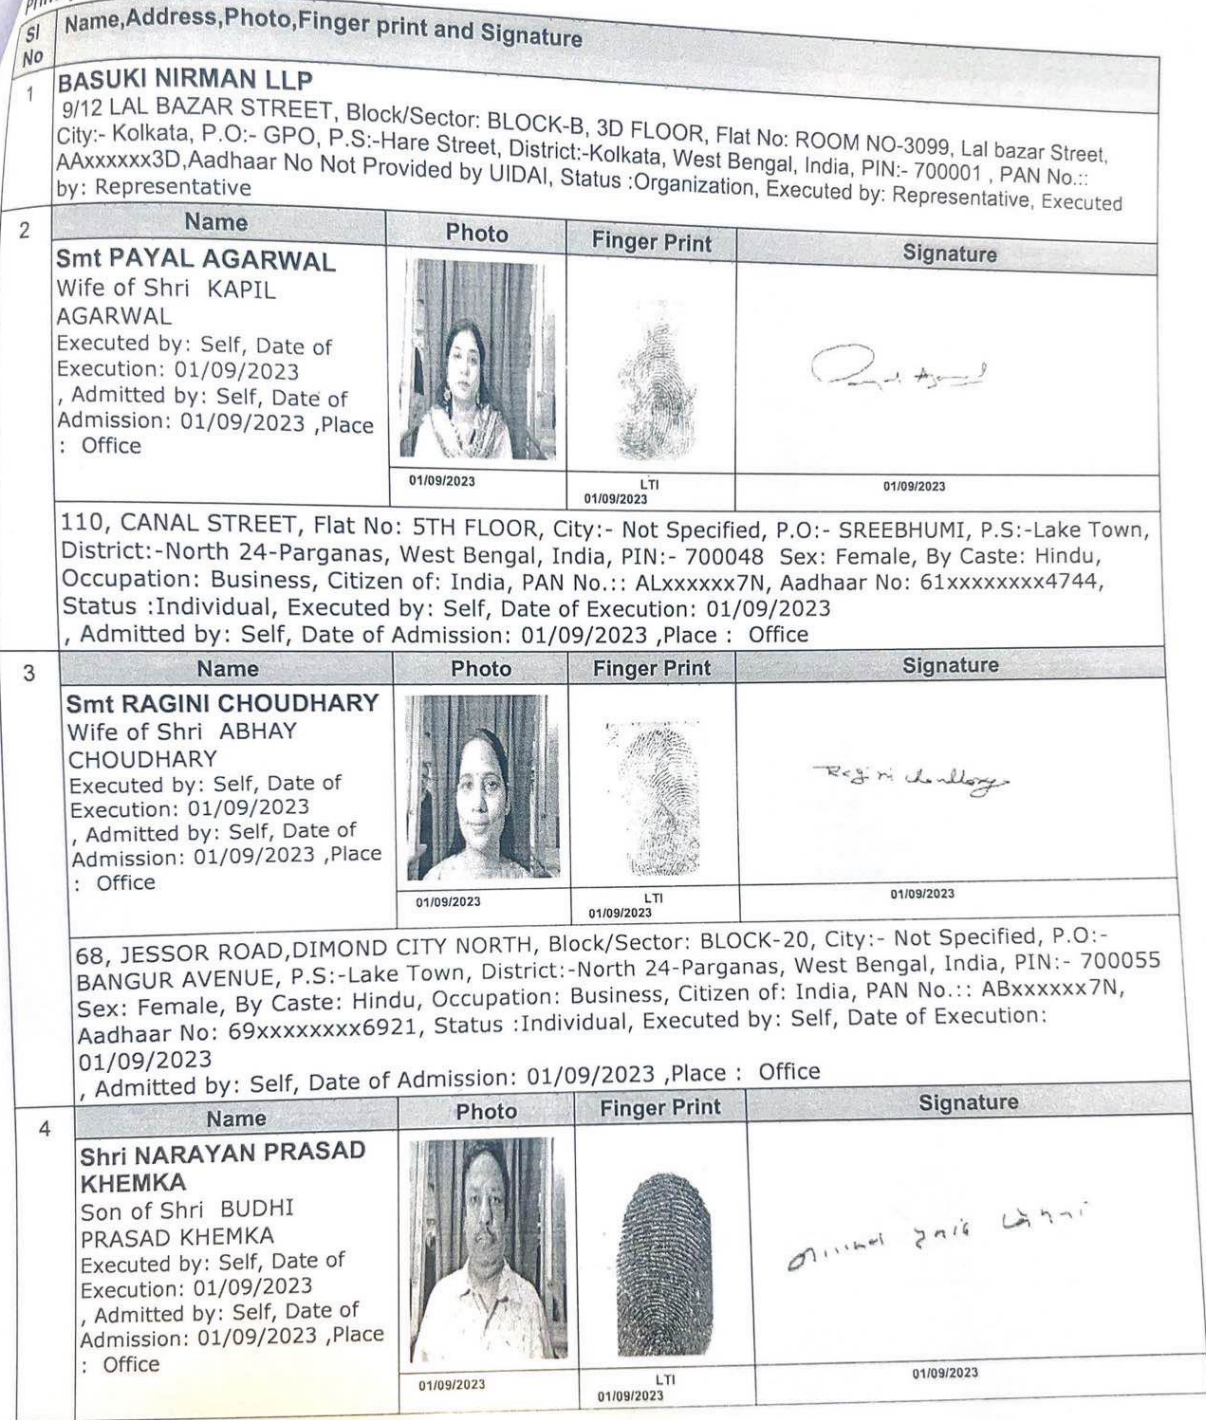 SI No
Name,Address,Photo,Finger print and Signature
1
BASUKI NIRMAN LLP
9/12 LAL BAZAR STREET, Block/Sector: BLOCK-B, 3D FLOOR, Flat No: ROOM NO-3099, Lal bazar Street,
City:- Kolkata, P.O:- GPO, P.S:-Hare Street, District:-Kolkata, West Bengal, India, PIN:- 700001 , PAN No.::
AAxxxxxx3D,Aadhaar No Not Provided by UIDAI, Status :Organization, Executed by: Representative, Executed
by: Representative
2
Name Photo Finger Print Signature
Smt PAYAL AGARWAL
Wife of Shri KAPIL
AGARWAL
Executed by: Self, Date of
Execution: 01/09/2023
, Admitted by: Self, Date of
Admission: 01/09/2023 ,Place
: Office
01/09/2023
LTI
01/09/2023
01/09/2023
110, CANAL STREET, Flat No: 5TH FLOOR, City:- Not Specified, P.O:- SREEBHUMI, P.S:-Lake Town,
District:-North 24-Parganas, West Bengal, India, PIN:- 700048 Sex: Female, By Caste: Hindu,
Occupation: Business, Citizen of: India, PAN No.:: ALxxxxxx7N, Aadhaar No: 61xxxxxxxx4744,
Status :Individual, Executed by: Self, Date of Execution: 01/09/2023
, Admitted by: Self, Date of Admission: 01/09/2023 ,Place : Office
3
Name Photo Finger Print Signature
Smt RAGINI CHOUDHARY
Wife of Shri ABHAY
CHOUDHARY
Executed by: Self, Date of
Execution: 01/09/2023
, Admitted by: Self, Date of
Admission: 01/09/2023 ,Place
: Office
01/09/2023
LTI
01/09/2023
01/09/2023
68, JESSOR ROAD,DIMOND CITY NORTH, Block/Sector: BLOCK-20, City:- Not Specified, P.O:-
BANGUR AVENUE, P.S:-Lake Town, District:-North 24-Parganas, West Bengal, India, PIN:- 700055
Sex: Female, By Caste: Hindu, Occupation: Business, Citizen of: India, PAN No.:: ABxxxxxx7N,
Aadhaar No: 69xxxxxxxx6921, Status :Individual, Executed by: Self, Date of Execution:
01/09/2023
, Admitted by: Self, Date of Admission: 01/09/2023 ,Place : Office
4
Name Photo Finger Print Signature
Shri NARAYAN PRASAD
KHEMKA
Son of Shri BUDHI
PRASAD KHEMKA
Executed by: Self, Date of
Execution: 01/09/2023
, Admitted by: Self, Date of
Admission: 01/09/2023 ,Place
: Office
01/09/2023
LTI
01/09/2023
01/09/2023